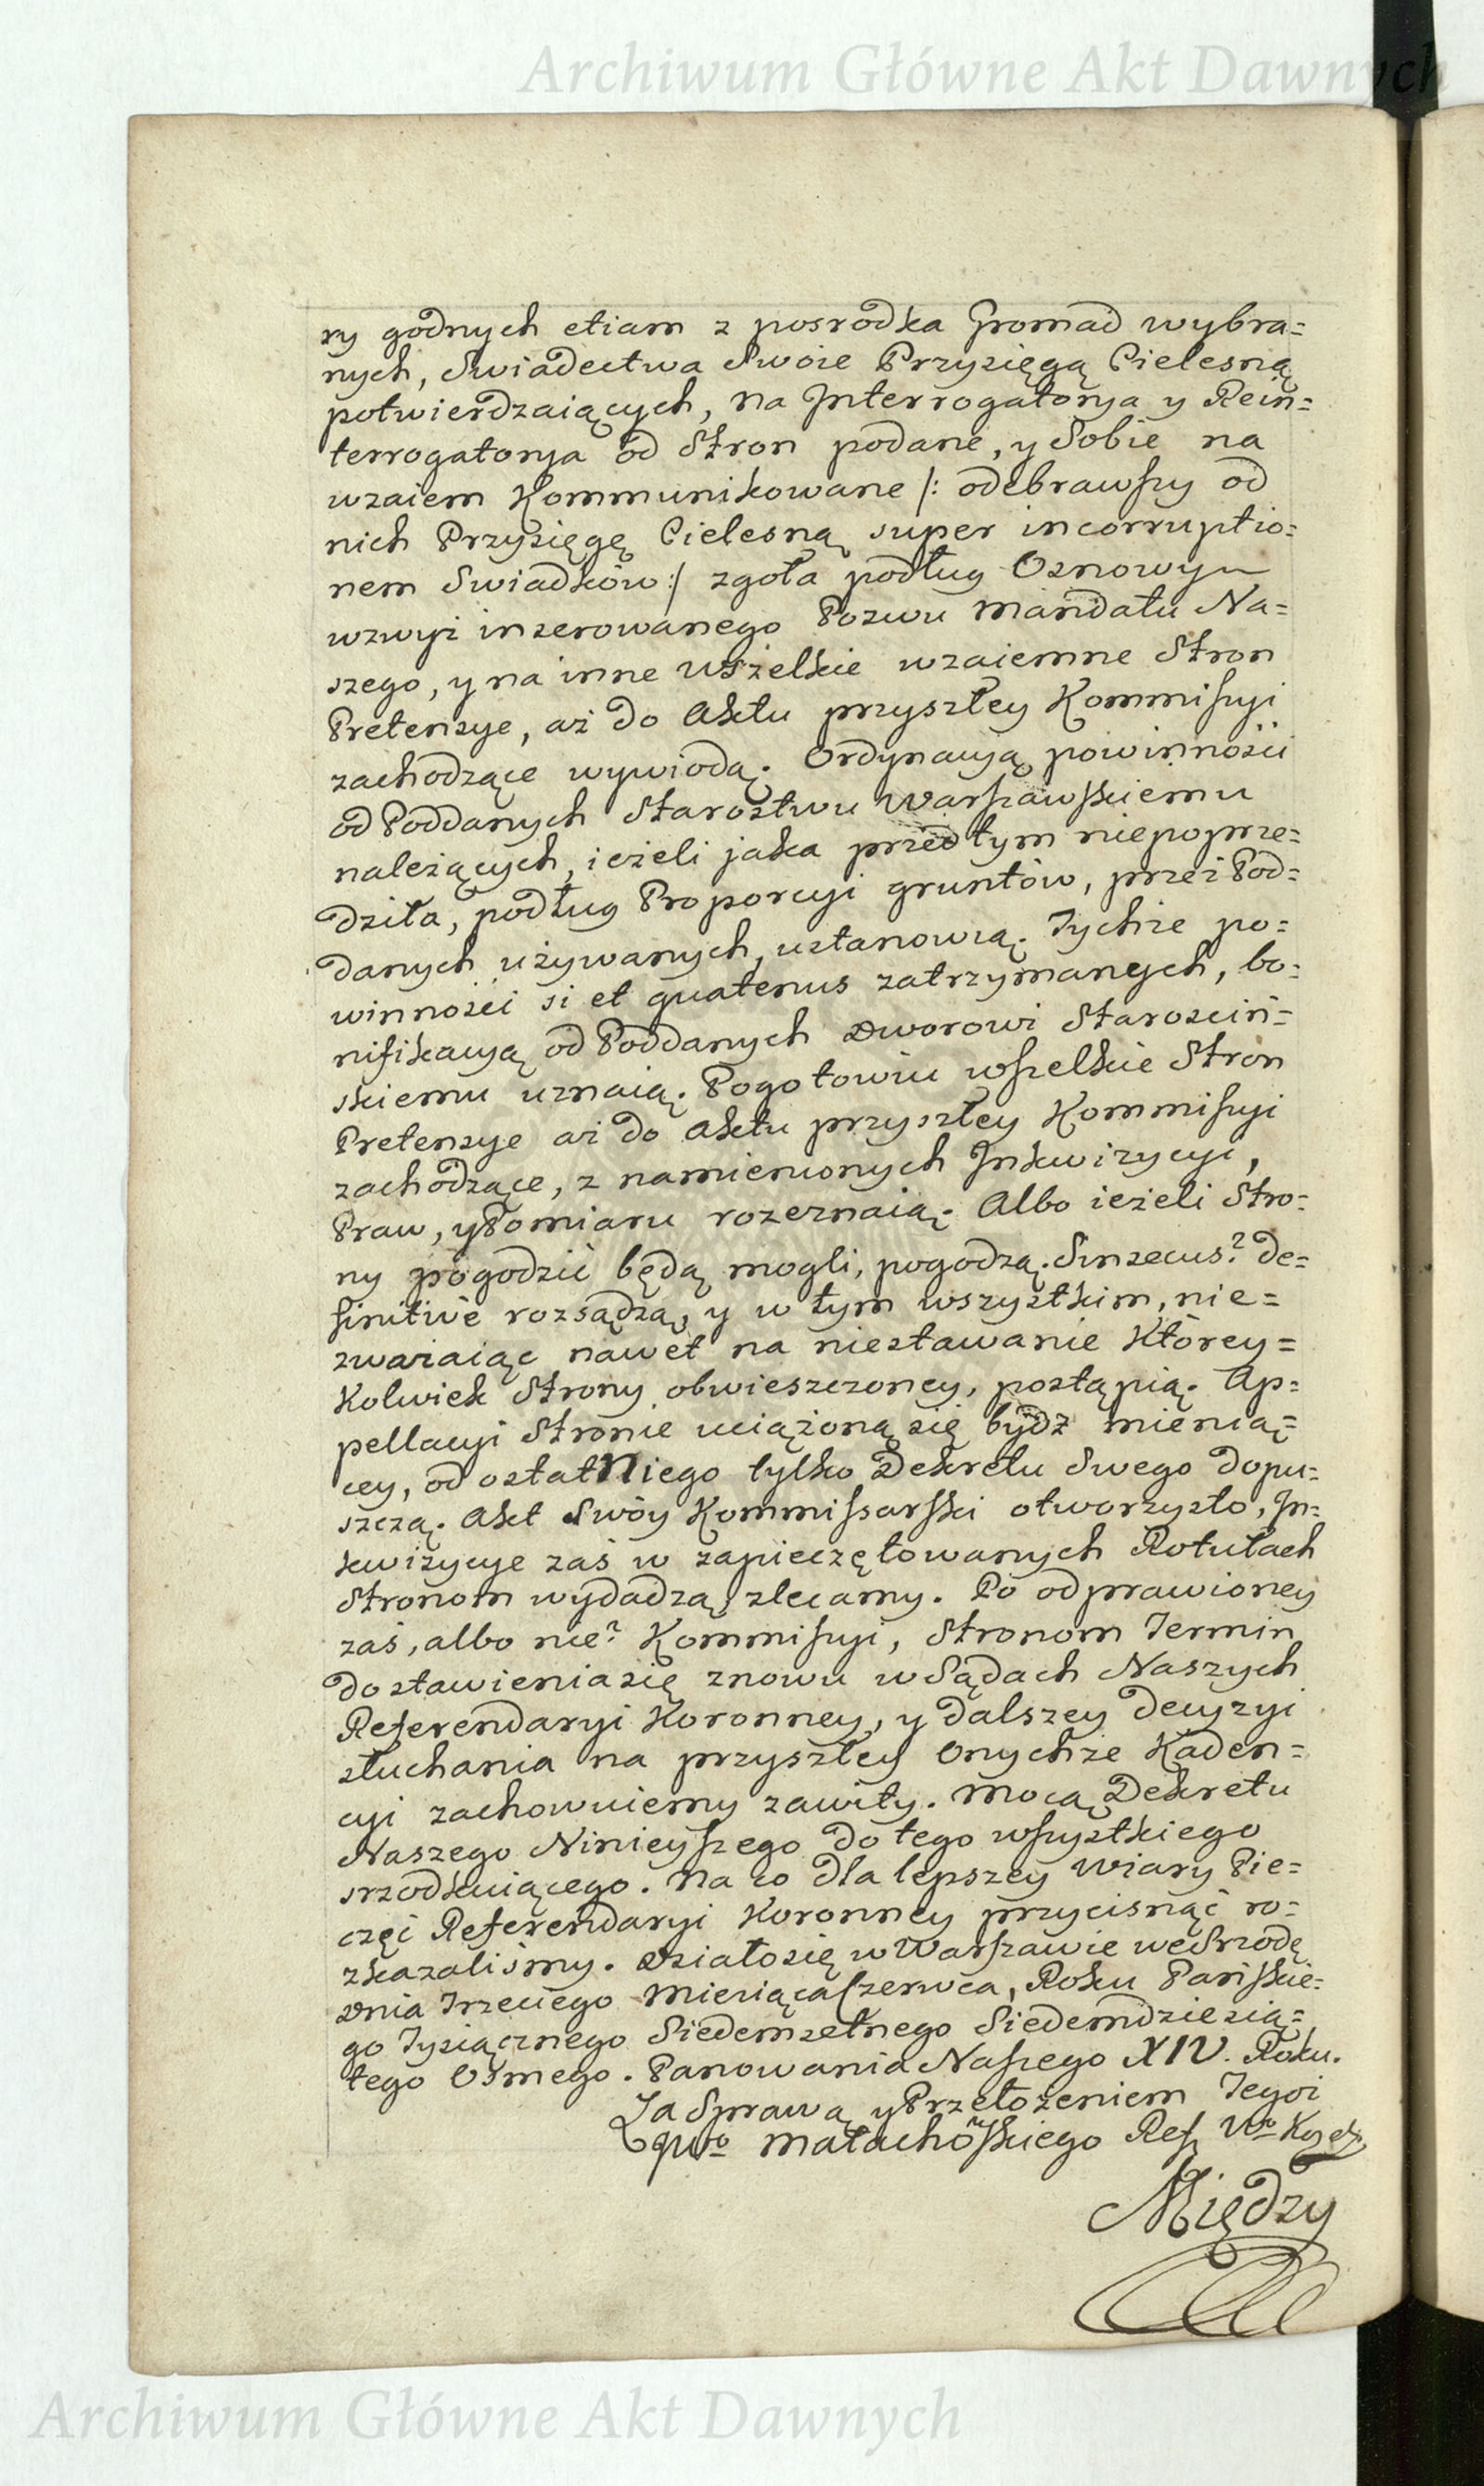 Archiwum Główne Akt Dawnych
ry godnych etiam z posrodka Gromad wybra=
nych, Swiadectwa Swoie Przysięgą Cielesną
potwierdzaiących, na Jnterrogatorya y Rein=
terrogatorya od Stron podane, y Sobie na
wzaiem Kommunikowane /: odebrawszy od
nich Przysięgę Cielesną super incorruptio=
nem Swiadków :/ zgoła podług Osnowy
wzwyż inserowanego Pozwu Mandatu Na=
szego, y na inne wszelkie wzaiemne Stron
Pretensye, aż do Aktu przyszłey Kommissyi
zachodzące wywiodą. Ordynacyą powinności
od Poddanych Starostwu Warszawskiemu
należących, ieżeli jaka przed tym niepoprze=
dziła, podług Proporcyi gruntów, przez Pod=
danych używanych, ustanowią. Tychże po=
winności si et quatenus zatrzymanych, bo=
nifikacyą od Poddanych Dworowi Starościń=
skiemu uznaią. Pogotowiu wszelkie Stron
Pretensye aż do Aktu przyszłey Kommissyi
zachodzące, z namienionych Jnkwizycyi,
Praw, y Pomiaru rozeznaią. Albo ieżeli Stro=
ny pogodzić będą mogli, pogodzą. Sinsecus? de=
finitivè rozsądzą, y w tym wszystkim, nie=
zważaiąc nawet na niestawanie Którey=
Kolwiek Strony obwieszczoney, postąpią. Ap=
pellacyi Stronie uciążoną się bydź mienią=
cey, od ostatniego tylko Dekretu Swego dopu=
szczą. Akt Swóy Kommissarski otworzysto, Jn=
kwizycye zaś w zapieczętowanych Rotułach
Stronom wydadzą, zlecamy. Po odprawioney
zaś, albo nie? Kommissyi, Stronom Termin
do stawienia się znowu w Sądach Naszych
Referendaryi Koronney, y dalszey decyzyi
słuchania na przyszłey Onychże Kaden=
cyi zachowuiemy zawity. Mocą Dekretu
Naszego Ninieyszego do tego wszystkiego
srzodkuiącego. Na co dla lepszey wiary Pie=
częć Referendaryi Koronney przycisnąć ro=
zkazaliśmy. Działo się w Warszawie we Srzodę
Dnia Trzeciego Miesiąca Czerwca, Roku Pańskie=
go Tysiącznego Siedemsetnego Siedemdziesią=
tego Osmego. Panowania Naszego XIV. Roku.
Za Sprawą y Przełożeniem Jegoż
qwo Małachowskiego Ref. Wo
Między
Archiwum Główne Akt Dawnych